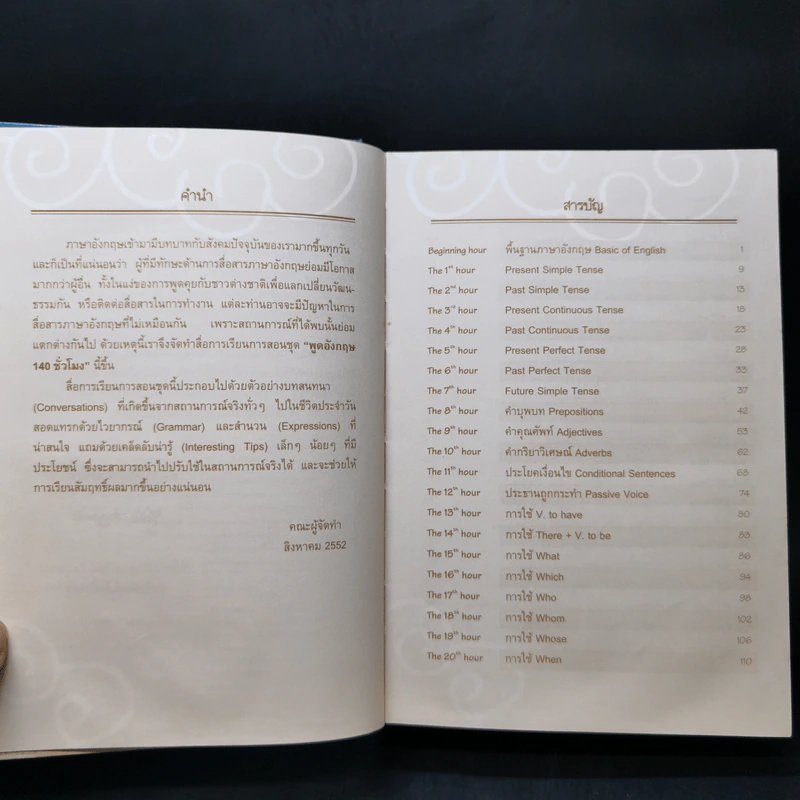 คำนำ
ภาษาอังกฤษเข้ามามีบทบาทกับสังคมปัจจุบันของเรามากขึ้นทุกวัน
และก็เป็นที่แน่นอนว่า ผู้ที่มีทักษะด้านการสื่อสารภาษาอังกฤษย่อมมีโอกาส
มากกว่าผู้อื่น ทั้งในแง่ของการพูดคุยกับชาวต่างชาติเพื่อแลกเปลี่ยนวัฒน-
ธรรมกัน หรือติดต่อสื่อสารในการทำงาน แต่ละท่านอาจจะมีปัญหาในการ
สื่อสารภาษาอังกฤษที่ไม่เหมือนกัน เพราะสถานการณ์ที่ได้พบนั้นย่อม
แตกต่างกันไป ด้วยเหตุนี้เราจึงจัดทำสื่อการเรียนการสอนชุด "พูดอังกฤษ
140 ชั่วโมง" นี้ขึ้น
สื่อการเรียนการสอนชุดนี้ประกอบไปด้วยตัวอย่างบทสนทนา
(Conversations) ที่เกิดขึ้นจากสถานการณ์จริงทั่วๆ ไปในชีวิตประจำวัน
สอดแทรกด้วยไวยากรณ์ (Grammar) และสำนวน (Expressions) ที่
น่าสนใจ แถมด้วยเคล็ดลับน่ารู้ (Interesting Tips) เล็กๆ น้อยๆ ที่มี
ประโยชน์ ซึ่งจะสามารถนำไปปรับใช้ในสถานการณ์จริงได้ และจะช่วยให้
การเรียนสัมฤทธิ์ผลมากขึ้นอย่างแน่นอน
คณะผู้จัดทำ
สิงหาคม 2552
สารบัญ
Beginning hour พื้นฐานภาษาอังกฤษ Basic of English 1
The 1st hour Present Simple Tense 9
The 2nd hour Past Simple Tense 13
The 3rd hour Present Continuous Tense 18
The 4th hour Past Continuous Tense 23
The 5th hour Present Perfect Tense 28
The 6th hour Past Perfect Tense 33
The 7th hour Future Simple Tense 37
The 8th hour คำบุพบท Prepositions 42
The 9th hour คำคุณศัพท์ Adjectives 53
The 10th hour คำกริยาวิเศษณ์ Adverbs 62
The 11th hour ประโยคเงื่อนไข Conditional Sentences 68
The 12th hour ประธานถูกกระทำ Passive Voice 74
The 13th hour การใช้ V. to have 80
The 14th hour การใช้ There + V. to be 83
The 15th hour การใช้ What 86
The 16th hour การใช้ Which 94
The 17th hour การใช้ Who 98
The 18th hour การใช้ Whom 102
The 19th hour การใช้ Whose 106
The 20th hour การใช้ When 110